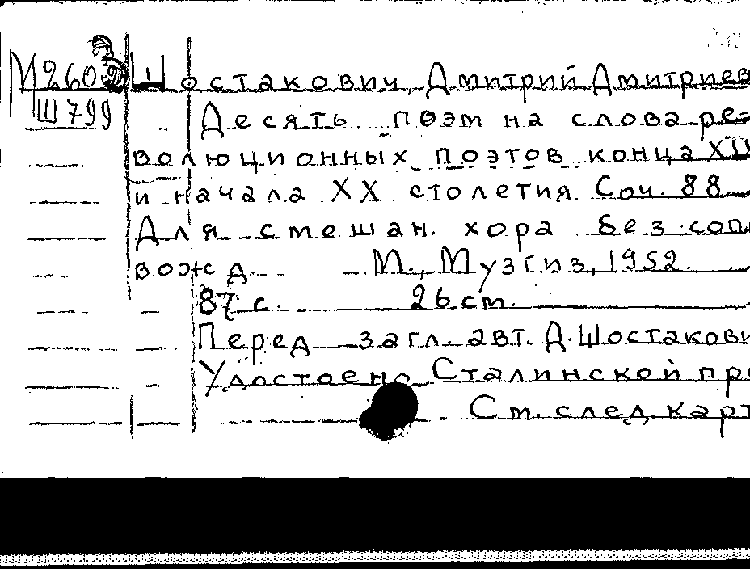 М260 Шостакович, Дмитрий Дмитриев
Ш799 Десять поэм на слова ре-
волюционных поэтов конца XIX
и начала XX столетия. Соч. 88
Для смешан. хора без соп
вожд. М., Музгиз, 1952.
87 с. 26 см.
Перед загл. авт. Д. Шостакови
Удостоено Сталинской пре
См. след. карт